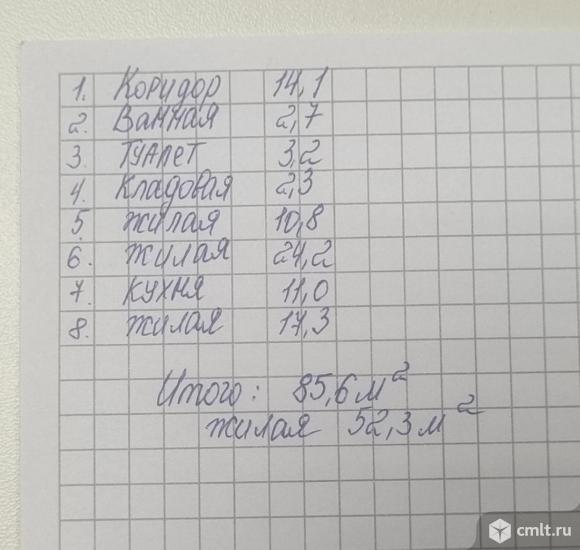 1. Коридор 14,1
2. Ванная 2,7
3. Туалет 3,2
4. Кладовая 2,3
5. жилая 10,8
6. жилая 24,2
7. кухня 11,0
8. жилая 17,3
Итого: 85,6 м²
жилая 52,3 м²
cmlt.ru